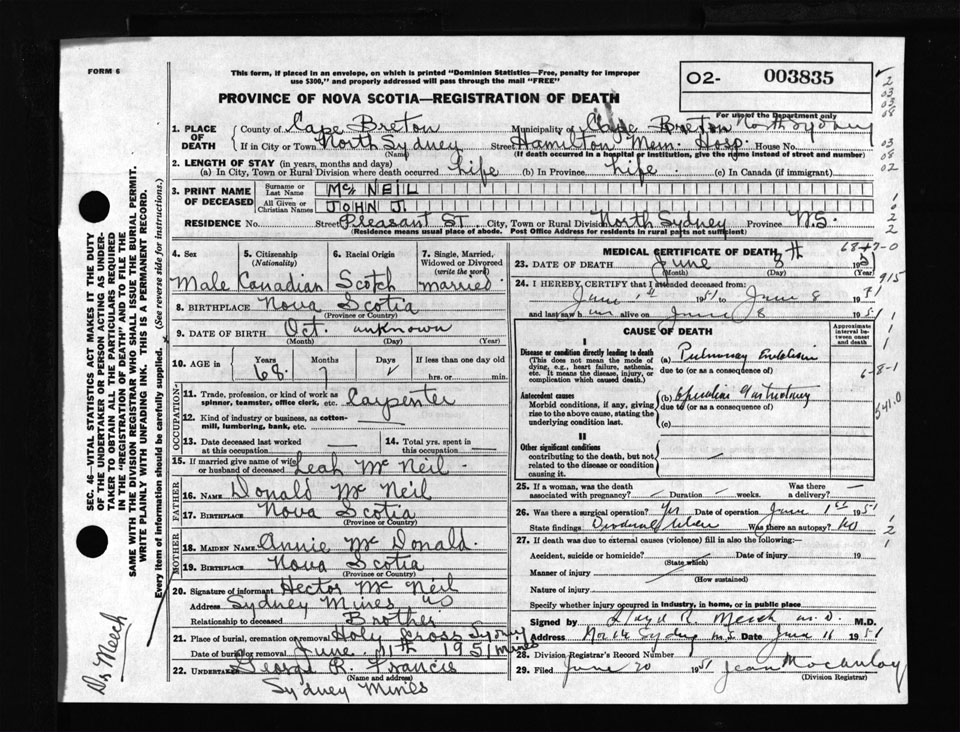 FORM 6
This form, if placed in an envelope, on which is printed "Dominion Statistics—Free, penalty for improper
use $300," and properly addressed will pass through the mail "FREE"
02- 003835
For use of the Department only
PROVINCE OF NOVA SCOTIA—REGISTRATION OF DEATH
1. PLACE OF DEATH County of Cape Breton Municipality of Cape Breton North Sydney
If in City or Town North Sydney (Name) Street Hamilton Mem. Hosp. House No.
(If death occurred in a hospital or institution, give the name instead of street and number)
2. LENGTH OF STAY (in years, months and days)
(a) In City, Town or Rural Division where death occurred Life (b) In Province Life (c) In Canada (if immigrant)
3. PRINT NAME OF DECEASED Surname or Last Name McNEIL
All Given or Christian Names JOHN J.
RESIDENCE No. Street Pleasant ST. City, Town or Rural Division North Sydney Province N.S.
(Residence means usual place of abode. Post Office Address for residents in rural parts not sufficient)
4. Sex Male
5. Citizenship (Nationality) Canadian
6. Racial Origin Scotch
7. Single, Married, Widowed or Divorced (write the word) married
8. BIRTHPLACE Nova Scotia
(Province or Country)
9. DATE OF BIRTH Oct. unknown
(Month) (Day) (Year)
10. AGE in Years 68 Months 7 Days If less than one day old
hrs. or min.
OCCUPATION
11. Trade, profession, or kind of work as spinner, teamster, office clerk, etc. Carpenter
12. Kind of industry or business, as cotton-mill, lumbering, bank, etc. —
13. Date deceased last worked at this occupation —
14. Total yrs. spent in this occupation —
15. If married give name of wife or husband of deceased Leah McNeil
FATHER
16. NAME Donald McNeil
17. BIRTHPLACE Nova Scotia
(Province or Country)
MOTHER
18. MAIDEN NAME Annie McDonald.
19. BIRTHPLACE Nova Scotia
(Province or Country)
20. Signature of informant Hector McNeil
Address Sydney Mines NS
Relationship to deceased Brother
21. Place of burial, cremation or removal Holy Cross Sydney Mines
Date of burial or removal June 11th 1951
22. UNDERTAKER George R. Francis
(Name and address)
Sydney Mines
MEDICAL CERTIFICATE OF DEATH
23. DATE OF DEATH June 8th 1951
(Month) (Day)
24. I HEREBY CERTIFY that I attended deceased from:
June 1st 1951 to June 8 1951
and last saw him alive on June 8 1951
CAUSE OF DEATH
Approximate interval between onset and death
I
Disease or condition directly leading to death (a) Pulmonary Embolism
(This does not mean the mode of dying, e.g., heart failure, asthenia, etc. It means the disease, injury, or complication which caused death.)
due to (or as a consequence of)
Antecedent causes (b)
Morbid conditions, if any, giving rise to the above cause, stating the underlying condition last.
due to (or as a consequence of)
(c)
II
Other significant conditions
contributing to the death, but not related to the disease or condition causing it. —
25. If a woman, was the death associated with pregnancy? — Duration — weeks. Was there a delivery? —
26. Was there a surgical operation? Yes Date of operation June 1st 1951
State findings Duodenal Ulcer Was there an autopsy? No
27. If death was due to external causes (violence) fill in also the following:—
Accident, suicide or homicide? (State which) Date of injury 19
Manner of injury (How sustained)
Nature of injury
Specify whether injury occurred in industry, in home, or in public place
Signed by Lloyd R. Meech M.D. M.D.
Address North Sydney N.S. Date June 16 1951
28. Division Registrar's Record Number
29. Filed June 20 1951 Jean Macaulay
(Division Registrar)
SEC. 46—VITAL STATISTICS ACT MAKES IT THE DUTY
OF THE UNDERTAKER OR PERSON ACTING AS UNDER-
TAKER TO OBTAIN ALL THE PARTICULARS REQUIRED
IN THE "REGISTRATION OF DEATH" AND TO FILE THE
SAME WITH THE DIVISION REGISTRAR WHO SHALL ISSUE THE BURIAL PERMIT.
WRITE PLAINLY WITH UNFADING INK. THIS IS A PERMANENT RECORD.
Every item of information should be carefully supplied. (See reverse side for instructions.)
Dr Meech